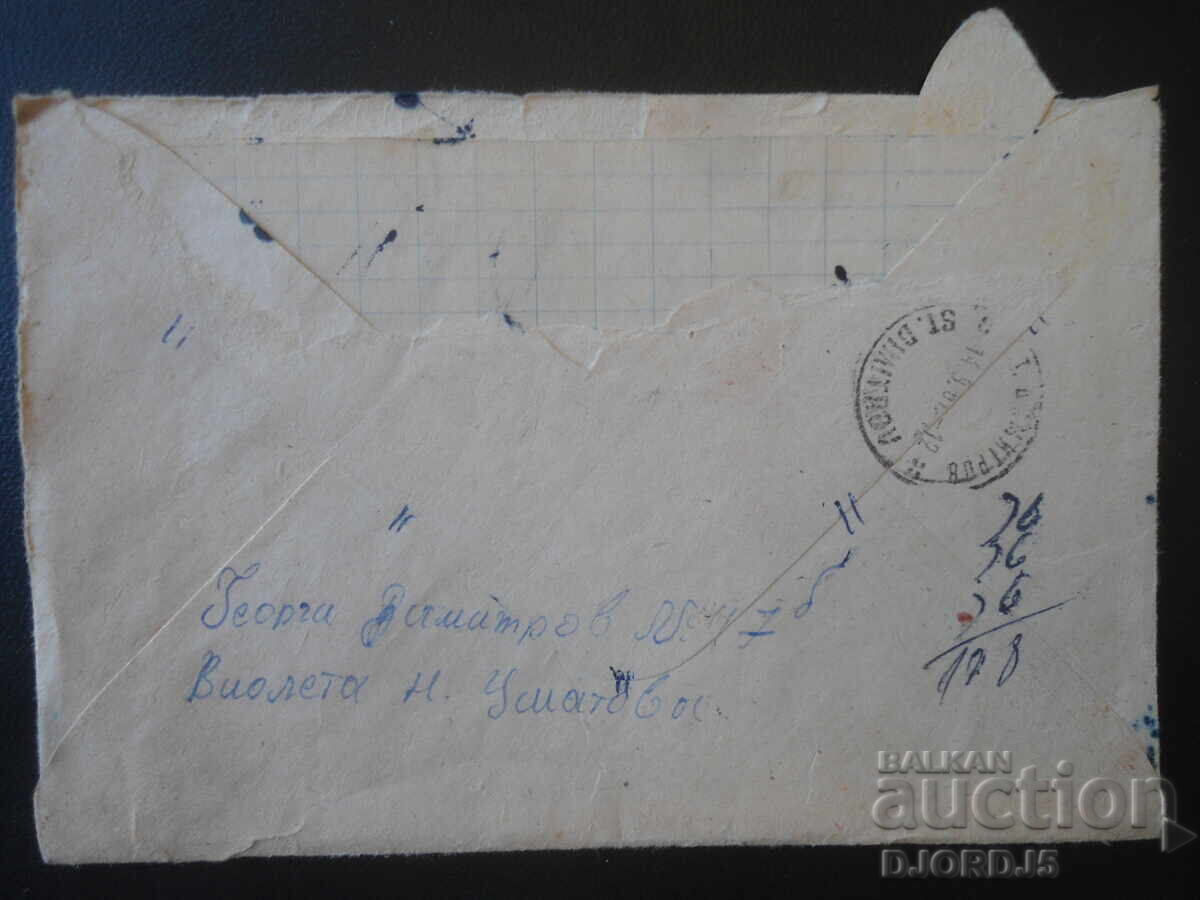 СТ. ДИМИТРОВ
ST. DIMITROV
"
"
"
Георги Димитров № 7 б
Виолета Н. Уматова
36
36
36
128
BALKAN
auction
DJORDJ5